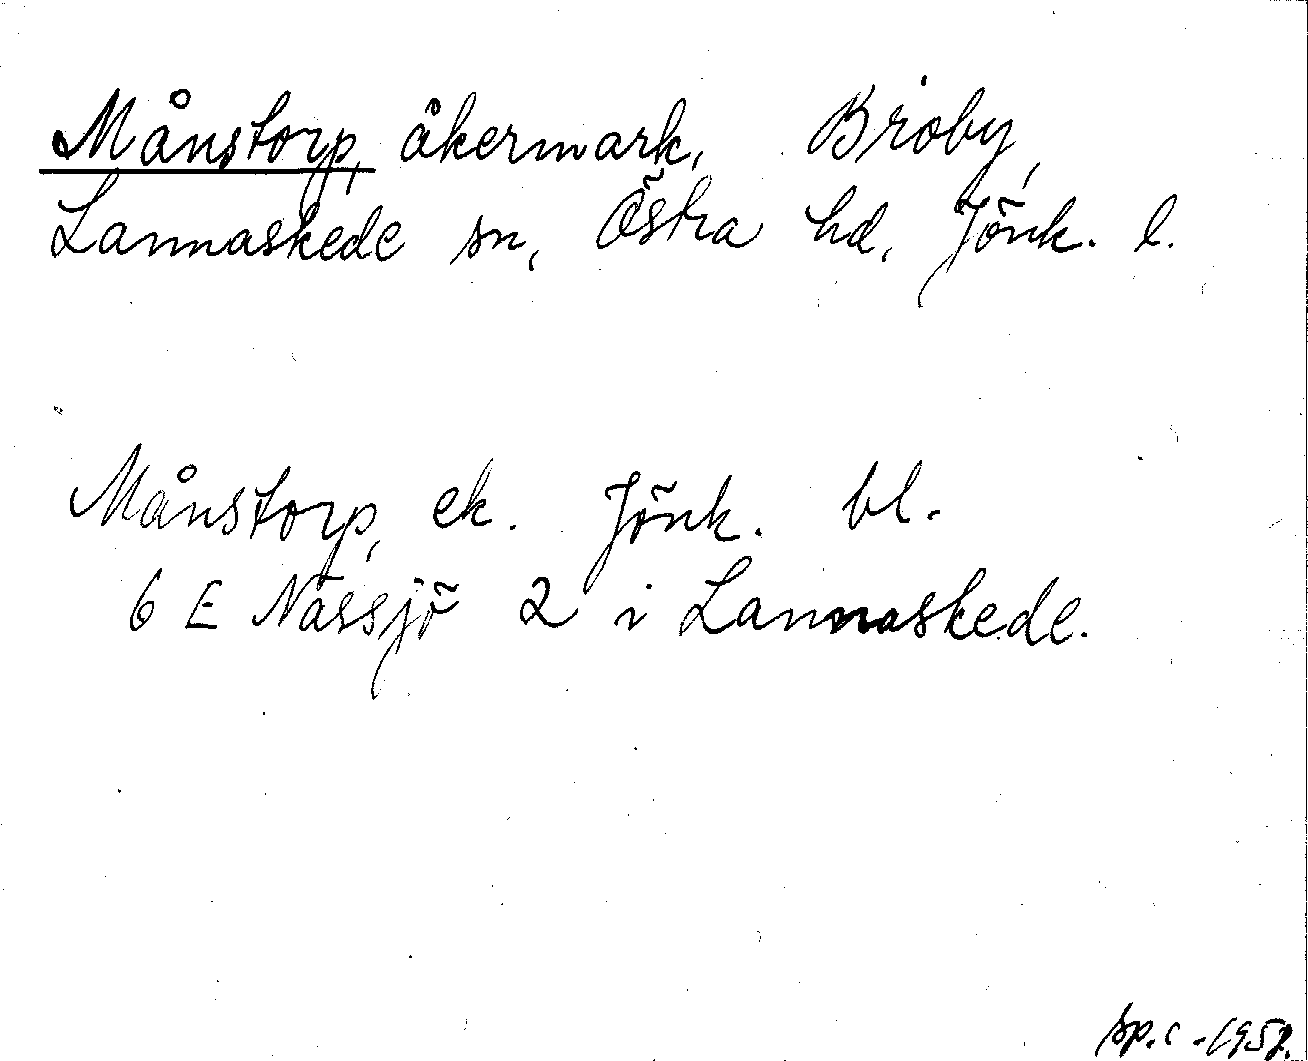 Månstorp, åkermark, Broby,
Lannaskede sn, Östra hd, Jönk. l.
Månstorp, ek. Jönk. bl.
6 E Nässjö 2 i Lannaskede.